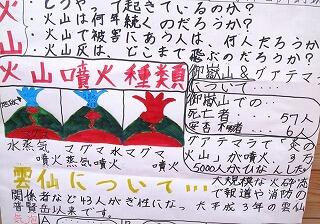 どうやって起きているのか？
・火山は何年続くのだろうか？
・火山で被害にあう人は、何人だろうか
・火山灰は、どこまで飛ぶのだろうか？
火山
火山噴火種類
マグマ
水蒸気噴火
マグマ水蒸気噴火
マグマ噴火
御嶽山&グアテマラ
について……
御嶽山での…
死亡者 57人
安否不明者…6人
グアテマラで「炎の
火山」が噴火、3万
5000人がひなんした
雲仙について…
大規模な火砕流
で報道や消防の
関係者など43人がぎ性にな
普賢岳以来です。
大平成3年の雲仙